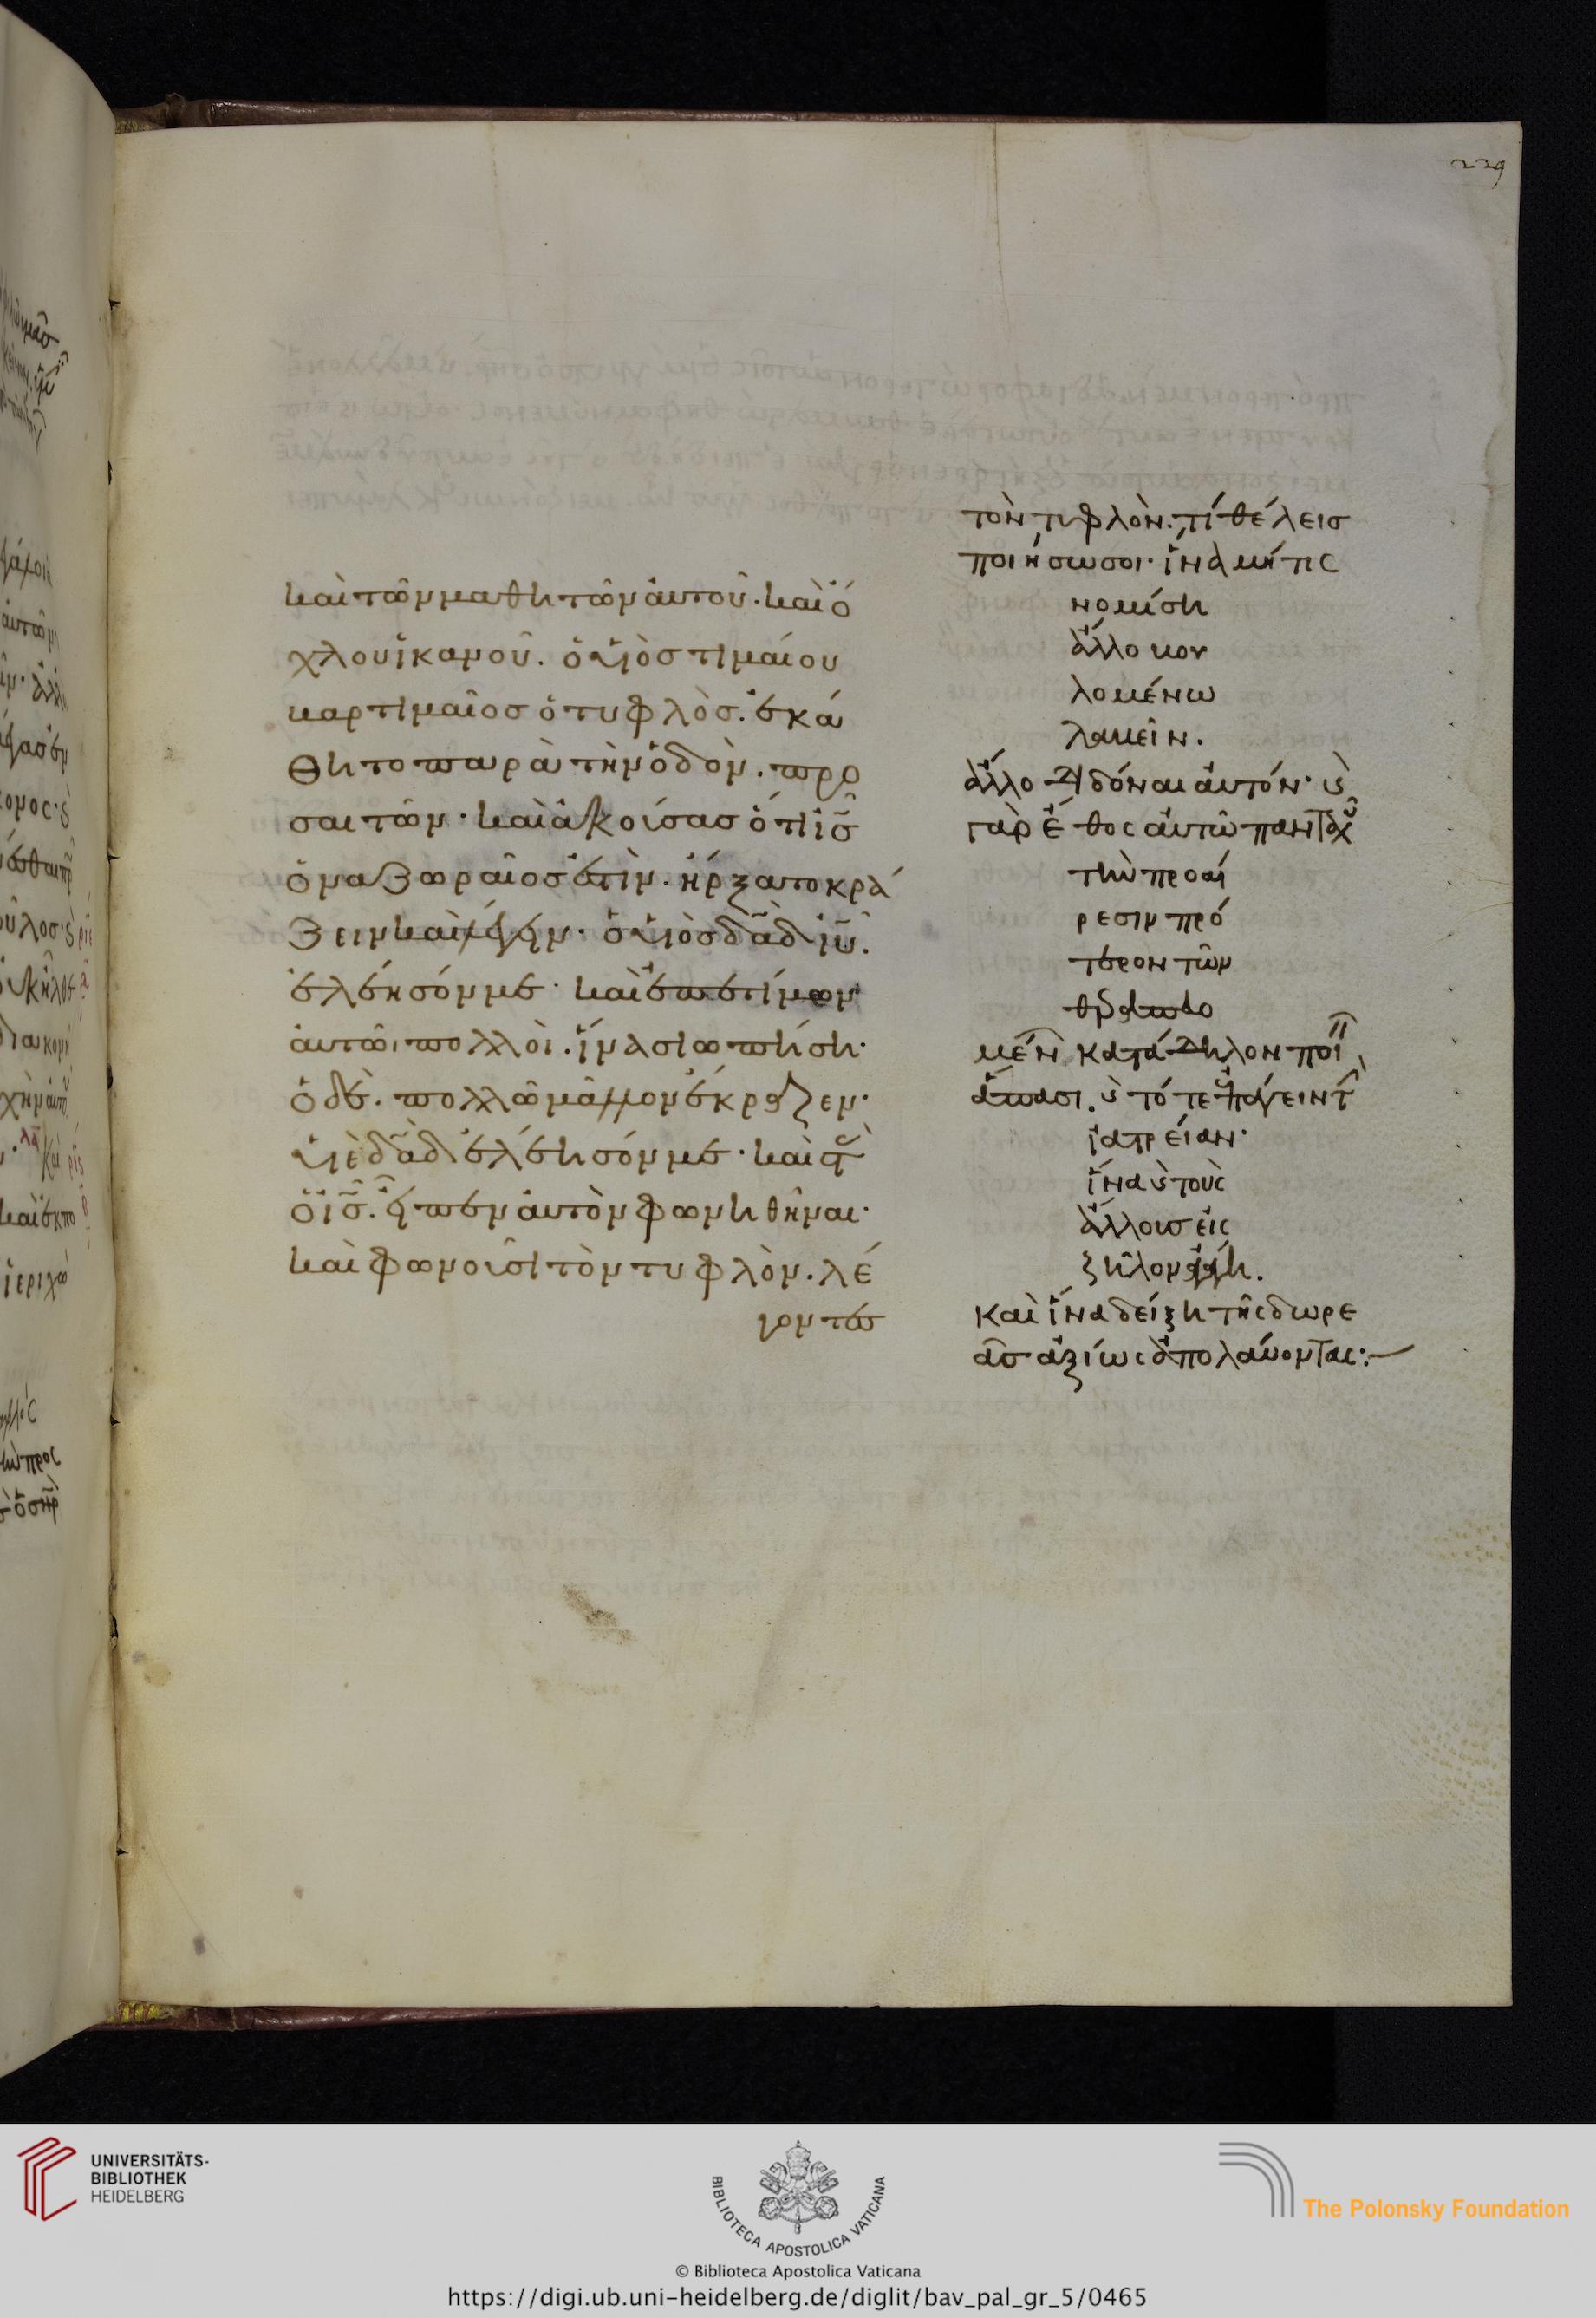 229
καὶ τῶν μαθητῶν αὐτοῦ· καὶ ὄ
χλου ἱκανοῦ. ὁ υἱὸσ τιμαίου
βαρτιμαῖοσ ὁ τυφλὸσ. ἐκά
θητο παρὰ τὴν ὁδὸν. προ
σαιτῶν· καὶ ἀκούσασ ὅτι ις
ὁ ναζωραῖοσ ἐστὶν. ἤρξατο κρά
ζειν καὶ λέγειν· ὁ υἱὸσ δαδ ιυ.
ἐλέησόν με· καὶ ἐπετίμων
αὐτῶ πολλοὶ. ἵνα σιωπήση·
ὁ δὲ. πολλῶ μᾶλλον ἔκραζεν·
υἱὲ δαδ ἐλέησόν με· καὶ στ
ὁ ις. εἶπεν αὐτὸν φωνηθῆναι·
καὶ φωνοῦσι τὸν τυφλὸν. λέ
γοντεσ
τὸν τυφλὸν. τί θέλεισ
ποιήσω σοι· ἵνα μή τις
νομίση
ἄλλο βου
λομένω
λαβεῖν.
ἄλλο διδόναι αὐτόν· κ
γὰρ ἔθος αὐτῶ πανταχοῦ
τὴν προαί
ρεσιν πρό
τερον τῶν
μὲν κατάδηλον ποι
ἅπασι. κ τότε ἐπάγειν τ
ἰατρείαν·
ἵνα κ τοὺς
ἄλλουσ εἰς
ζῆλον
καὶ ἵνα δείξη τῆς δωρε
ᾶσ ἀξίως ἀπολαύονται:
UNIVERSITÄTS-
BIBLIOTHEK
HEIDELBERG
BIBLIOTECA APOSTOLICA VATICANA
The Polonsky Foundation
© Biblioteca Apostolica Vaticana
https://digi.ub.uni-heidelberg.de/diglit/bav_pal_gr_5/0465